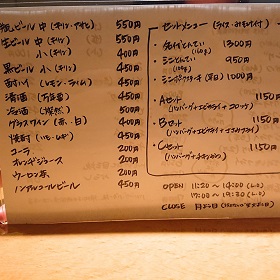 瓶ビール 中(キリン・アサヒ) 550円
生ビール 中(キリン) 550円
小(キリン) 400円
黒ビール 小(キリン) 450円
酎ハイ(レモン・ライム) 450円
清酒 450円
冷酒 450円
グラスワイン(赤、白) 400円
焼酎 450円
コーラ 200円
オレンジジュース 200円
ウーロン茶 200円
ノンアルコールビール 450円
セットメニュー(ライス・みそ汁付)
1300円
(160g)
1150円
(100g)
1000円
・Aセット 1150円
(ハンバーグ+エビフライ+コロッケ)
・Bセット 1150円
(ハンバーグ+エビフライ+
・Cセット 1150円
(ハンバーグ+チキンカツ)
OPEN 11:30 ~ 14:00 (L.O)
17:00 ~ 19:30 (L.O)
CLOSE 月曜日